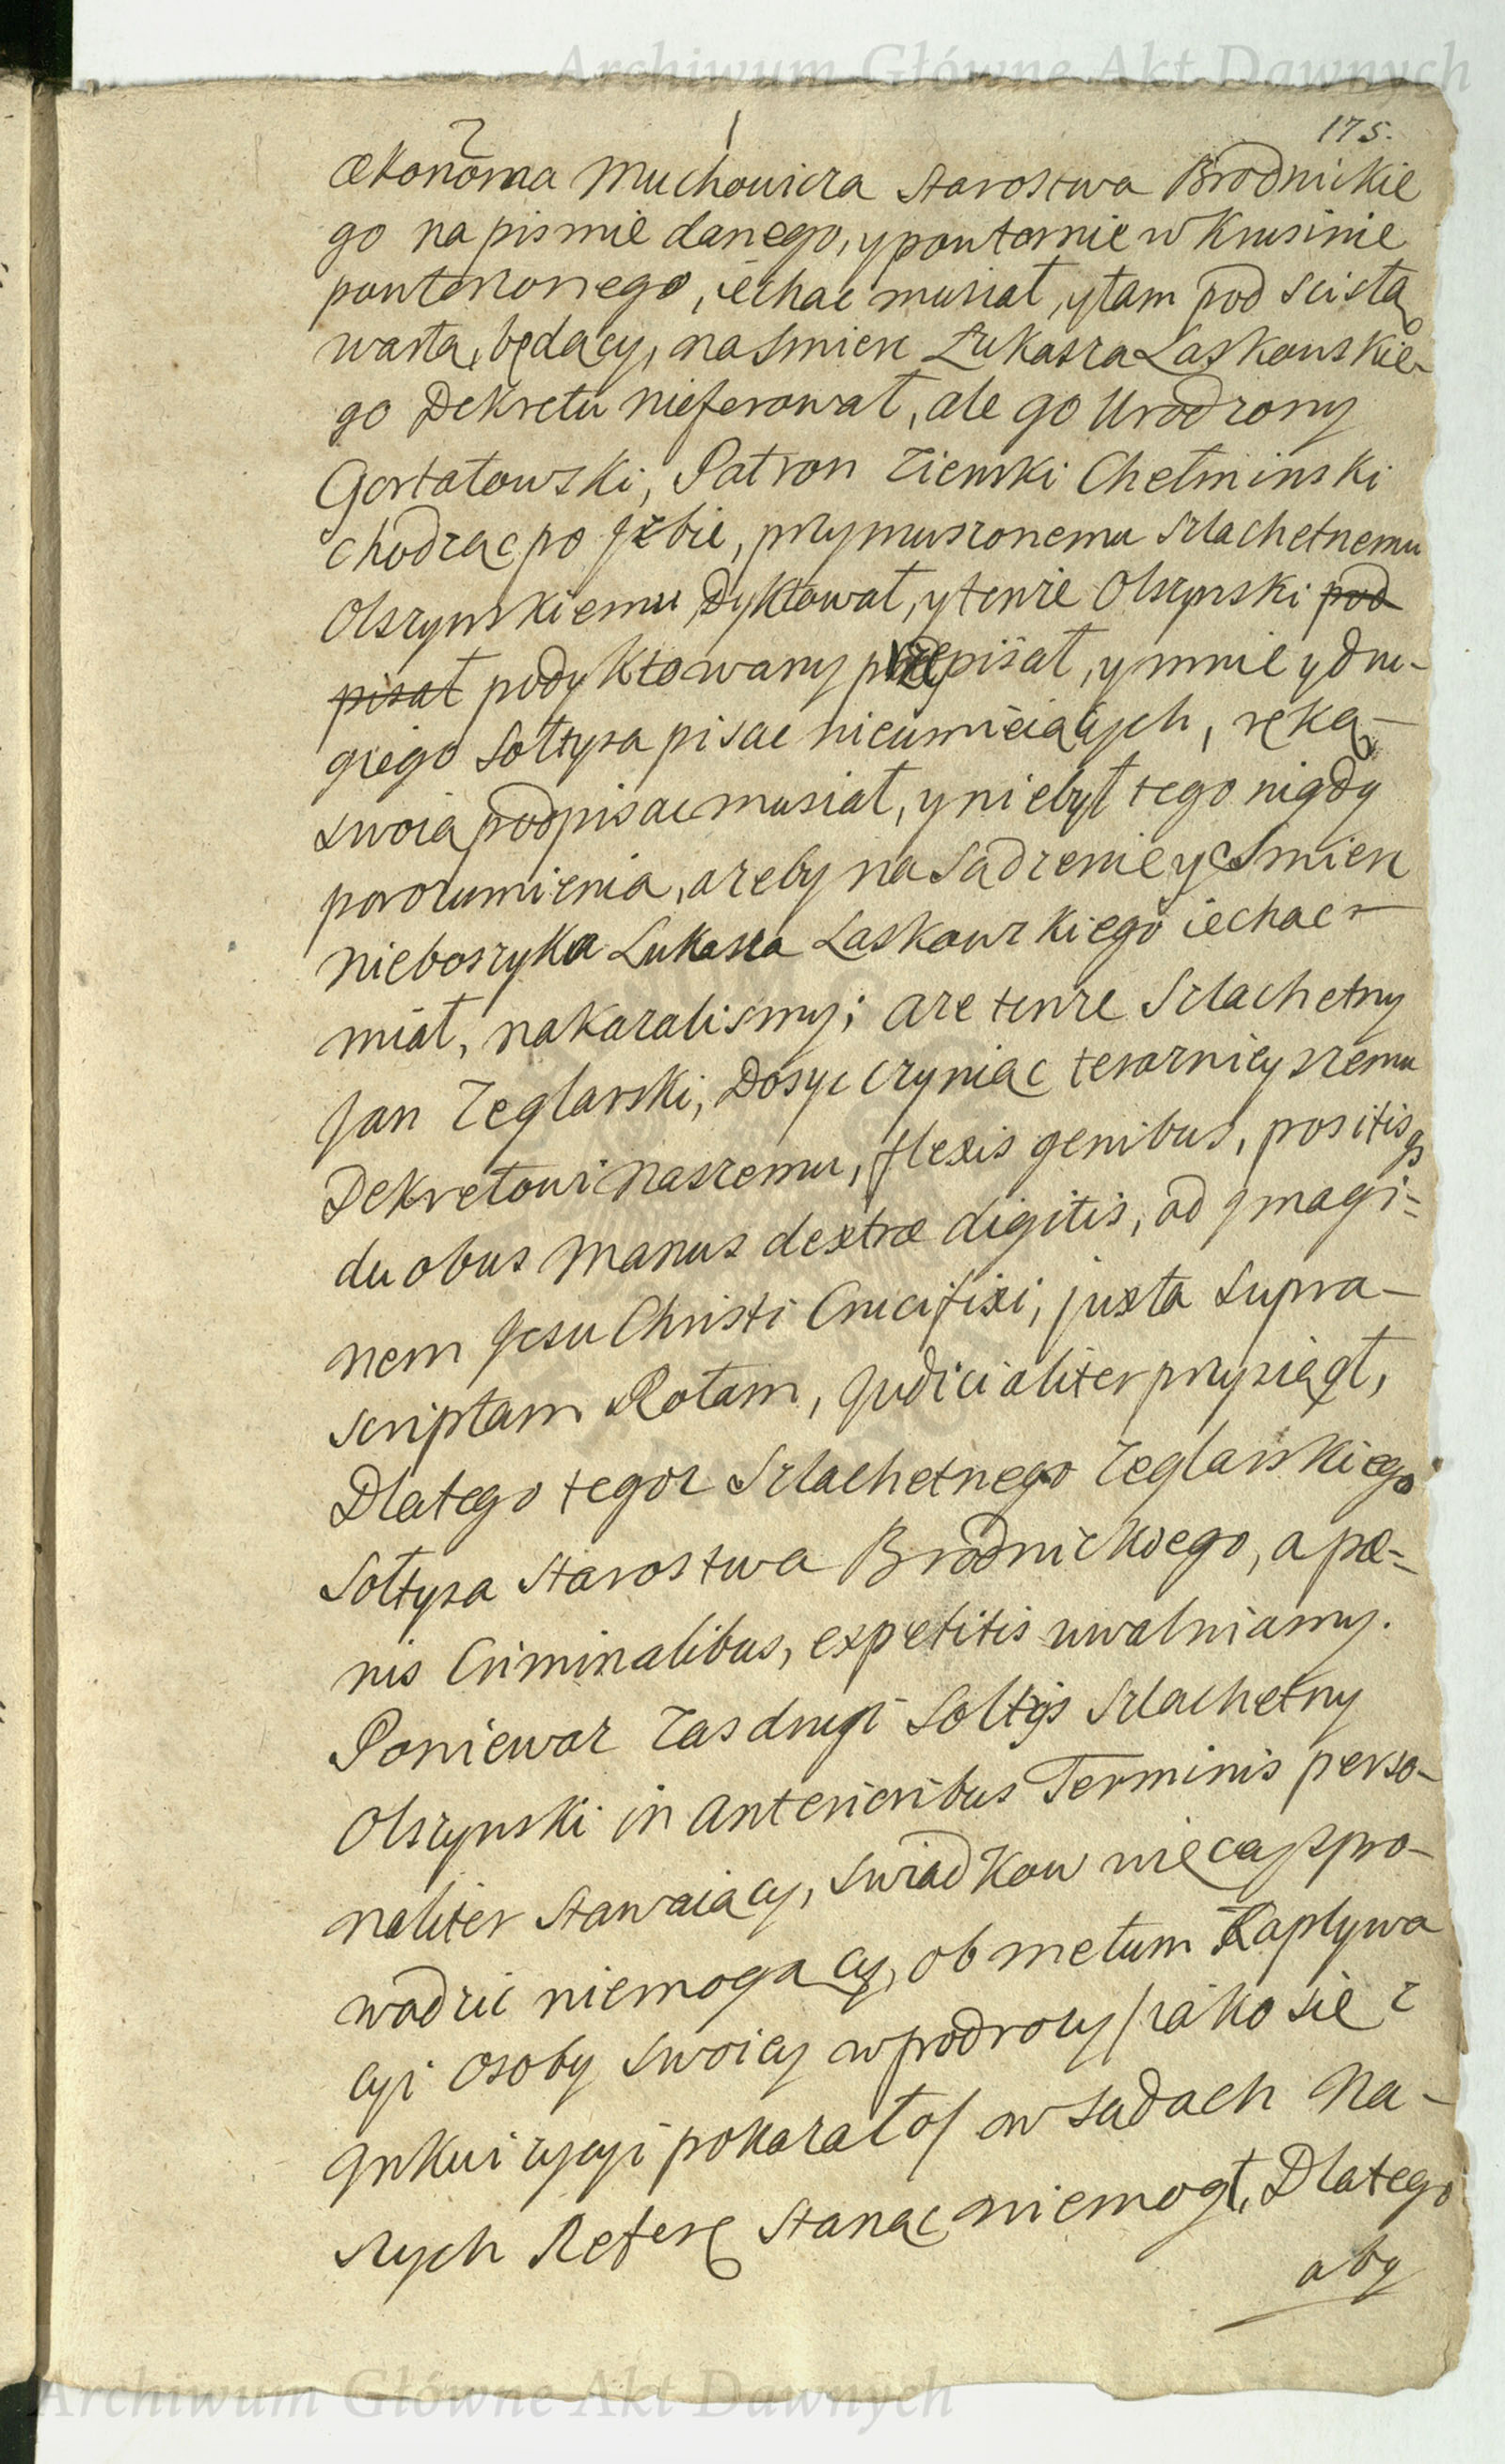 Archiwum Główne Akt Dawnych
175.
Œkonoma Muchowicza Starostwa Brodnickie
go na pismie danego, y powtornie w Krusinie
powtorzonego, iechac musiał, y tam pod scisłą
wartą będący, na smierc Łukasza Laskowskie-
go Dekretu nieferował, ale go Urodzony
Gortatowski, Patron Ziemski Chełminski
chodząc po Jzbie, przymuszonemu Szlachetnemu
Olszynskiemu Dyktował, y tenże Olszynski pod
pisał podyktowany przepisał, y mnie y dru-
giego Sołtysa pisac nieumieiących, ręką
swoią podpisac musiał, y niebył tego nigdy
porozumienia, azeby na Sądzenie y Smierc
nieboszyka Lukasza Laskowskiego iechac
miał, nakazalismy; a ze tenze Szlachetny
Jan Zeglarski, Dosyc czyniąc terazniejszemu
Dekretowi naszemu, flexis genibus, positisqs
duobus Manus dextræ digitis, ad Jmagi=
nem Jesu Christi Crucifixi, juxta supra-
scriptam Rotam, Judicialiter przysiągł,
Dlatego tegoz Szlachetnego Zeglarskiego
Sołtysa Starostwa Brodnickiego, a pœ=
nis Criminalibus, expetitis uwalniamy.
Poniewaz zas drugi Soltys Szlachetny
Olszynski in anterioribus Terminis perso-
naliter Stawaiący, swiadkow więcej spro-
wadzic niemogący, ob metum Kaptywa
cyi osoby swoiey w podrozy / iako się z
Jnkwizycyi pokazało / w Sądach Na-
szych Refere Stanąc niemogł, Dlatego
aby
Archiwum Główne Akt Dawnych